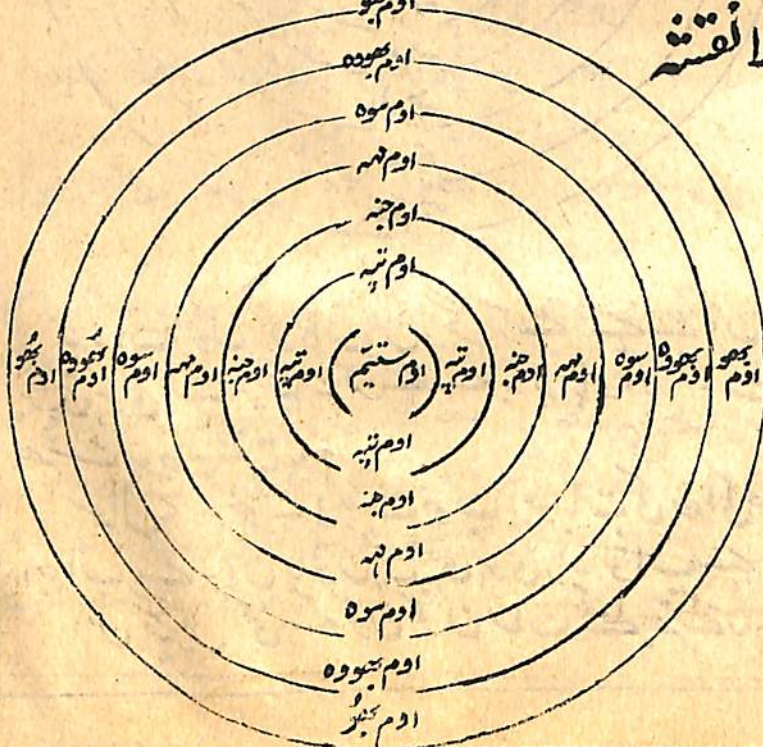 نقشہ
اوم بھو
اوم بھووہ
اوم سوہ
اوم مہہ
اوم جنہ
اوم تپہ
اوم بھو
اوم بھووہ
اوم سوہ
اوم مہہ
اوم جنہ
اوم تپہ
اوم ستیم
اوم تپہ
اوم جنہ
اوم مہہ
اوم سوہ
اوم بھووہ
اوم بھو
اوم تپہ
اوم جنہ
اوم مہہ
اوم سوہ
اوم بھووہ
اوم بھو